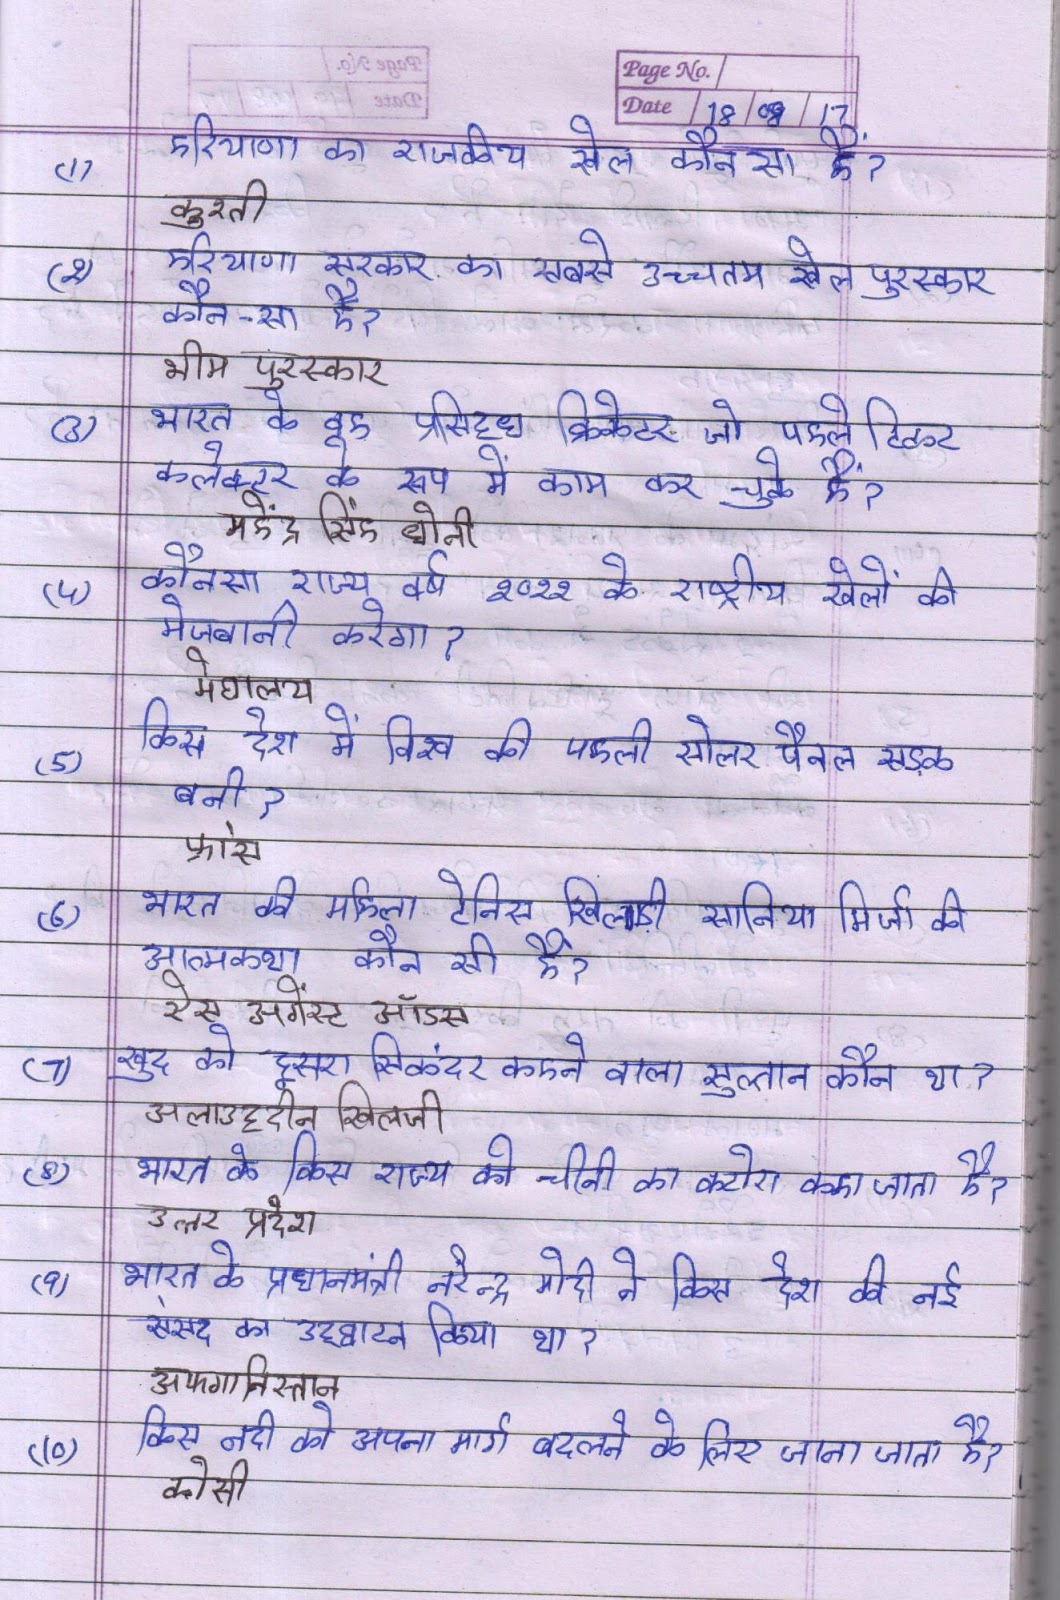 Page No.
Date 18/08/17
(1) हरियाणा का राजकीय खेल कौन सा हैं?
कुश्ती
(2) हरियाणा सरकार का सबसे उच्चतम खेल पुरस्कार
कौन-सा है?
भीम पुरस्कार
(3) भारत के वह प्रसिद्ध क्रिकेटर जो पहले टिकट
कलेक्टर के रूप में काम कर चुके हैं?
महेंद्र सिंह धोनी
(4) कौनसा राज्य वर्ष २०२२ के राष्ट्रीय खेलों की
मेजबानी करेगा?
मेघालय
(5) किस देश में विश्व की पहली सोलर पैनल सड़क
बनी?
फ्रांस
(6) भारत की महिला टेनिस खिलाड़ी सानिया मिर्जा की
आत्मकथा कौन सी है?
ऐस अगेंस्ट ऑडस
(7) खुद को दूसरा सिकंदर कहने वाला सुल्तान कौन था?
अलाउद्दीन खिलजी
(8) भारत के किस राज्य को चीनी का कटोरा कहा जाता है?
उत्तर प्रदेश
(9) भारत के प्रधानमंत्री नरेन्द्र मोदी ने किस देश की नई
संसद का उद्घाटन किया था?
अफगानिस्तान
(10) किस नदी को अपना मार्ग बदलने के लिए जाना जाता है?
कोसी